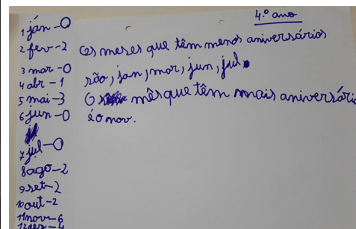 4.º ano
1 jan-0
2 fev-2
3 mar-0
4 abr-1
5 mai-3
6 jun-0
7 jul-0
8 ago-2
9 set-2
10 out-2
11 nov-6
12 dez-4
Os meses que têm menos aniversários
são, jan, mar, jun, jul.
O mês que têm mais aniversári
é o nov.